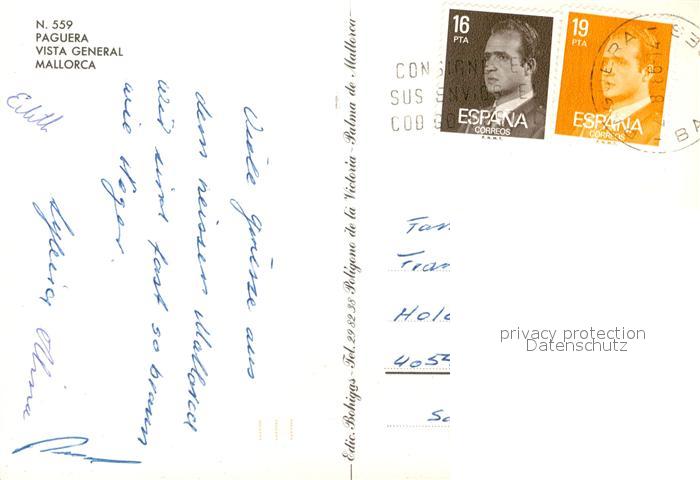 N. 559
PAGUERA
VISTA GENERAL
MALLORCA
Edith
Viele Grüsse aus
dem heissen Mallorca
Wir sind fast so braun
wie Neger.
Sylvia
Edic. Bohigas - Tel. 29 82 38 Polígono de la Victoria - Palma de Mallorca
16
PTA
ESPAÑA
CORREOS
F.N.M.T.
19
PTA
ESPAÑA
CORREOS
F.N.M.T.
CONSIGNE E
SUS ENVIOS E
COD
Fam
Fran
Hole
405
privacy protection
Datenschutz